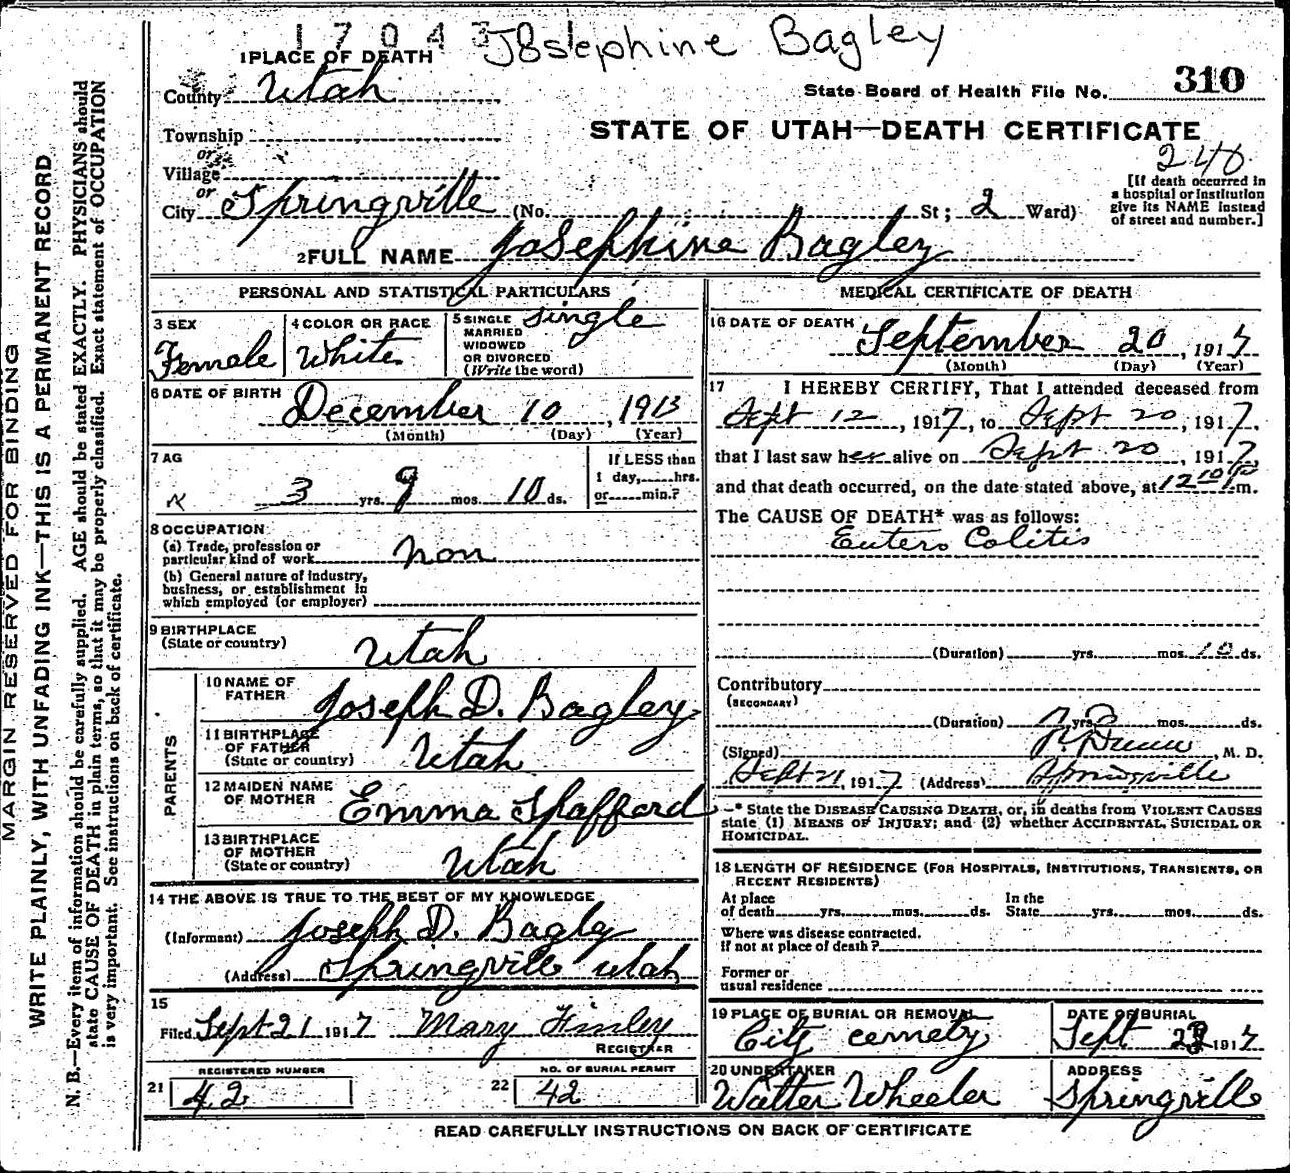 170430 Josephine Bagley
1 PLACE OF DEATH
County Utah
State Board of Health File No. 310
Township
STATE OF UTAH—DEATH CERTIFICATE
or
Village
240
[If death occurred in a hospital or institution give its NAME instead of street and number.]
or
City Springville (No. St; 2 Ward)
2 FULL NAME Josephine Bagley
PERSONAL AND STATISTICAL PARTICULARS
3 SEX
Female
4 COLOR OR RACE
White
5 SINGLE MARRIED WIDOWED OR DIVORCED (Write the word)
single
6 DATE OF BIRTH December 10, 1913
(Month) (Day) (Year)
7 AG
3 yrs. 9 mos. 10 ds.
If LESS than 1 day, hrs. or min.?
8 OCCUPATION
(a) Trade, profession or particular kind of work non
(b) General nature of industry, business, or establishment in which employed (or employer)
9 BIRTHPLACE
(State or country) Utah
PARENTS
10 NAME OF FATHER Joseph D. Bagley
11 BIRTHPLACE OF FATHER (State or country) Utah
12 MAIDEN NAME OF MOTHER Emma Spafford
13 BIRTHPLACE OF MOTHER (State or country) Utah
14 THE ABOVE IS TRUE TO THE BEST OF MY KNOWLEDGE
(Informant) Joseph D. Bagley
(Address) Springville Utah
15
Filed Sept 21 1917 Mary Finley
REGISTRAR
REGISTERED NUMBER
21 42
NO. OF BURIAL PERMIT
22 42
MEDICAL CERTIFICATE OF DEATH
16 DATE OF DEATH September 20, 1917
(Month) (Day) (Year)
17 I HEREBY CERTIFY, That I attended deceased from
Sept 12, 1917, to Sept 20, 1917.
that I last saw her alive on Sept 20, 1917
and that death occurred, on the date stated above, at 12 10 m.
The CAUSE OF DEATH* was as follows:
Entero Colitis
(Duration) yrs. mos. 10 ds.
Contributory
(SECONDARY)
(Duration) yrs. mos. ds.
(Signed) Dunn, M. D.
Sept 21, 1917 (Address) Springville
* State the DISEASE CAUSING DEATH, or, in deaths from VIOLENT CAUSES
state (1) MEANS OF INJURY; and (2) whether ACCIDENTAL, SUICIDAL OR
HOMICIDAL.
18 LENGTH OF RESIDENCE (FOR HOSPITALS, INSTITUTIONS, TRANSIENTS, OR
RECENT RESIDENTS)
At place of death yrs. mos. ds. In the State yrs. mos. ds.
Where was disease contracted.
If not at place of death?
Former or
usual residence
19 PLACE OF BURIAL OR REMOVAL
City cemety
DATE OF BURIAL
Sept 1917
20 UNDERTAKER
Walter Wheeler
ADDRESS
Springville
READ CAREFULLY INSTRUCTIONS ON BACK OF CERTIFICATE
MARGIN RESERVED FOR BINDING
WRITE PLAINLY, WITH UNFADING INK—THIS IS A PERMANENT RECORD
N. B.—Every item of information should be carefully supplied. AGE should be stated EXACTLY. PHYSICIANS should
state CAUSE OF DEATH in plain terms, so that it may be properly classified. Exact statement of OCCUPATION
is very important. See instructions on back of certificate.